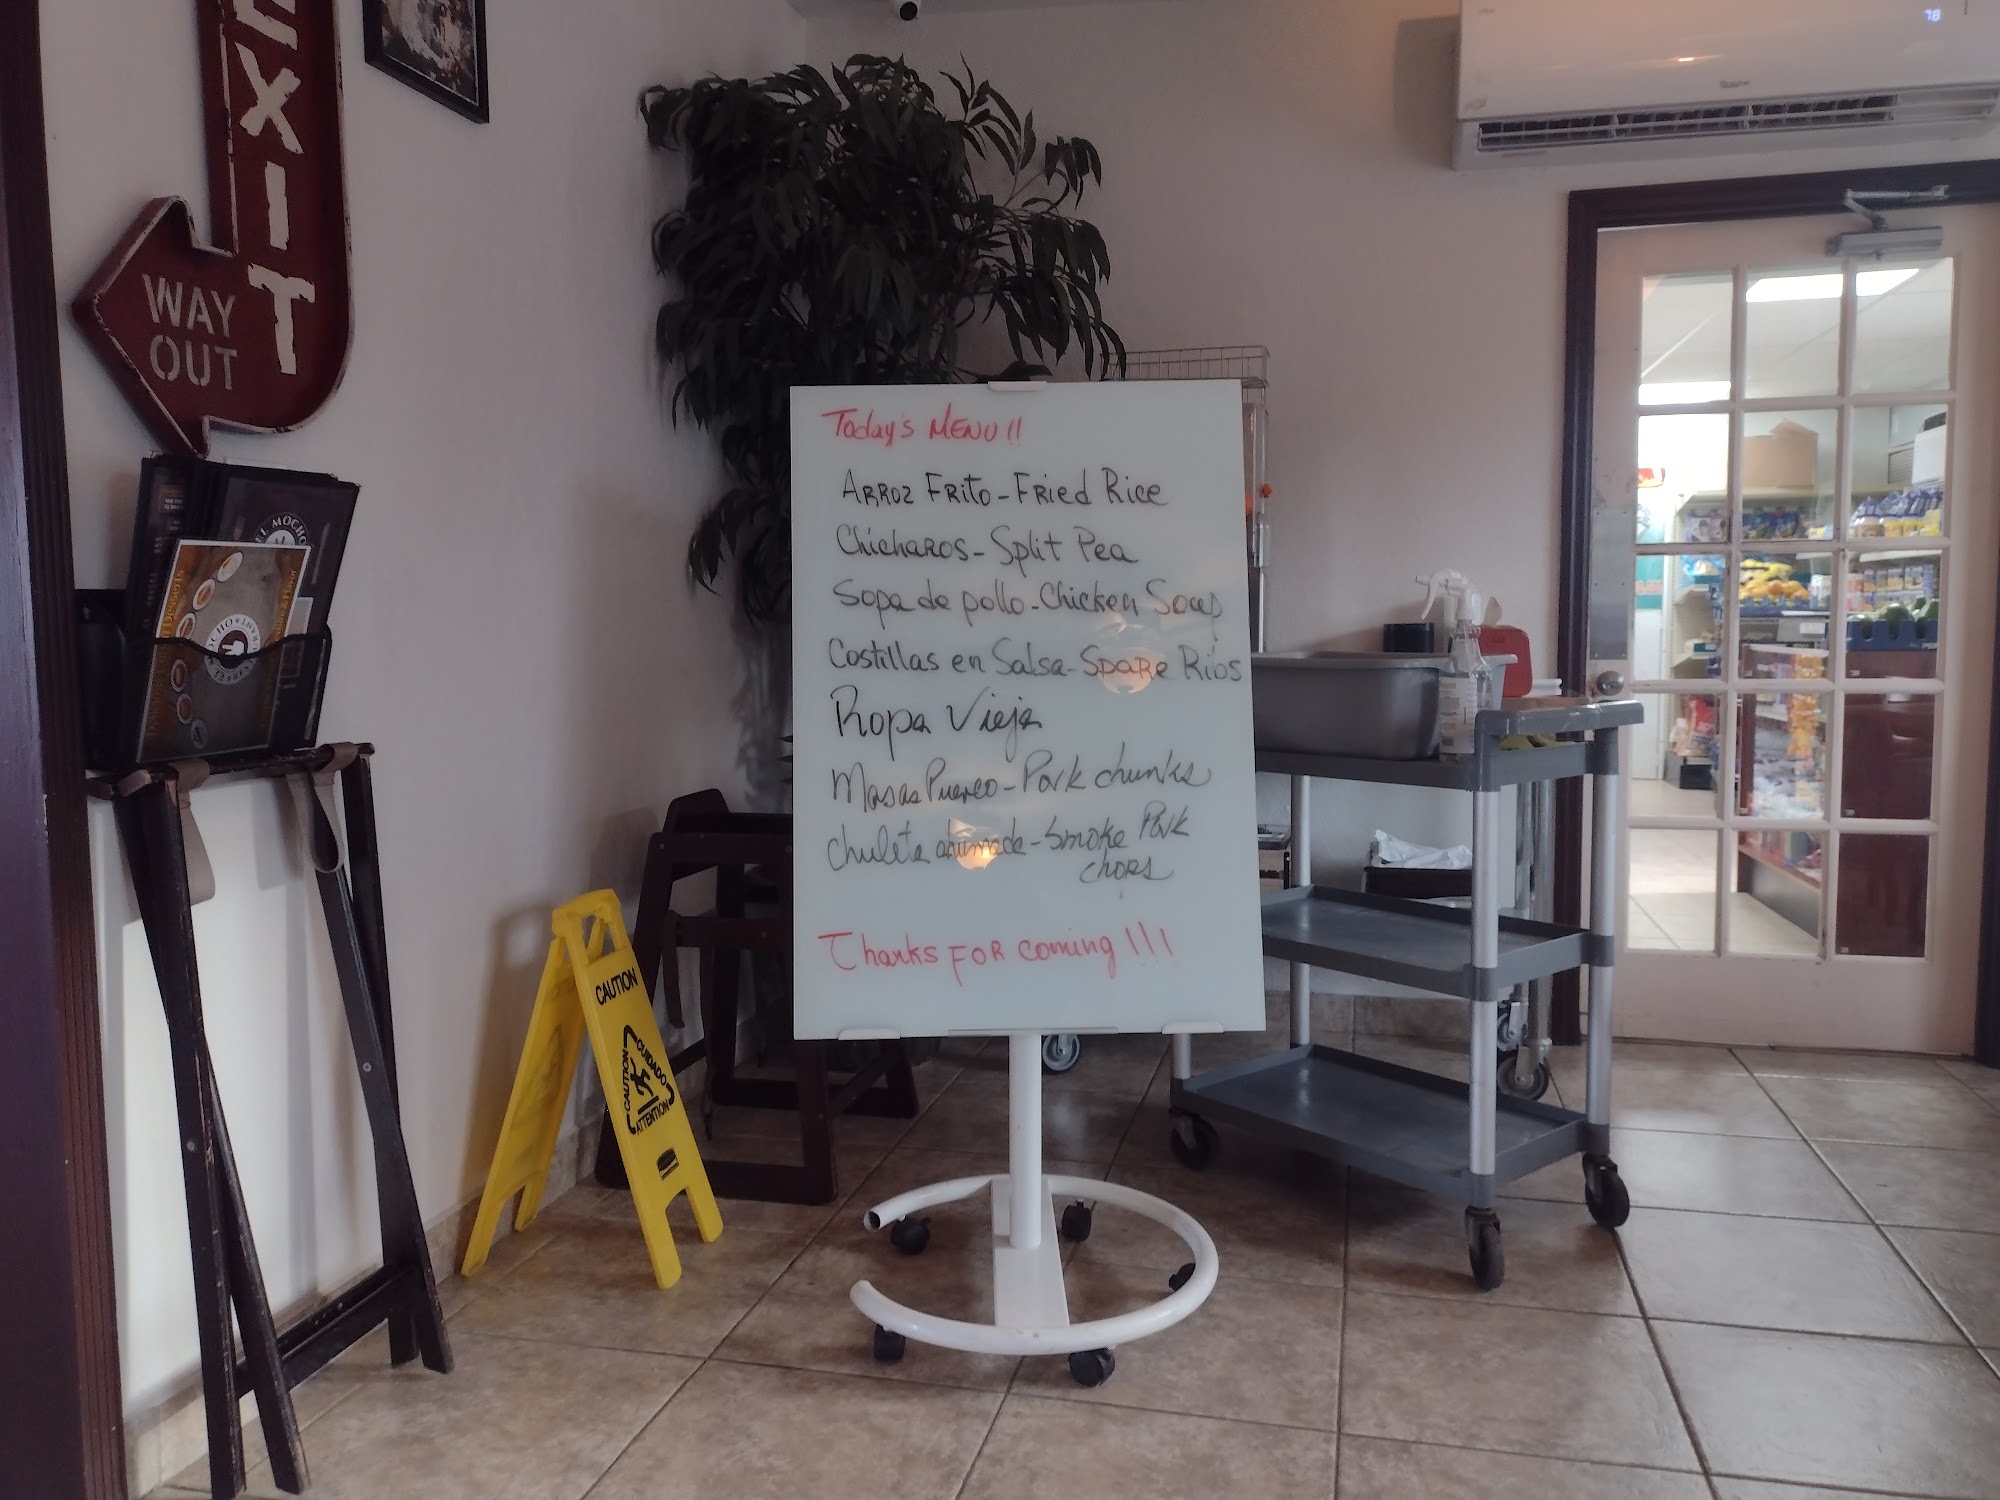 EXIT
WAY
OUT
78
EL MOCHO
Today's MENU!!
Arroz Frito - Fried Rice
Chicharos - Split Pea
Sopa de pollo - Chicken Soup
Costillas en Salsa - Spare Ribs
Ropa Vieja
Masas Puerco - Pork chunks
Chuleta ahumada - Smoke Pork
chops
Thanks FOR coming !!!
CAUTION
CAUTION
CUIDADO
ATTENTION